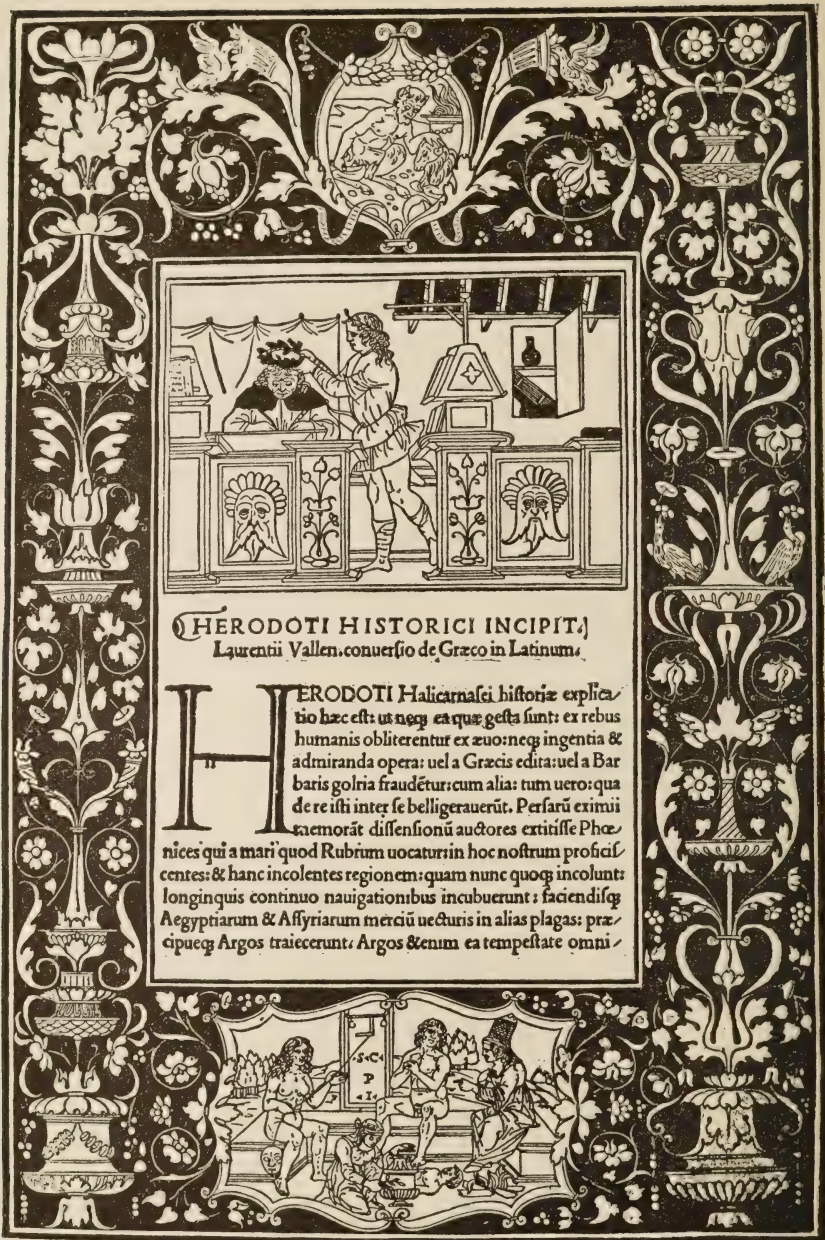 HERODOTI HISTORICI INCIPIT.
Laurentii Vallen. conuersio de Græco in Latinum.
HERODOTI Halicarnasei historiæ explica/
tio hæc est: ut neqꝫ ea quæ gesta sunt: ex rebus
humanis obliterentur ex æuo: neqꝫ ingentia &
admiranda opera: uel a Græcis edita: uel a Bar
baris golria fraudētur: cum alia: tum uero: qua
de re isti inter se belligerauerūt. Persarū eximii
memorāt dissensionū auctores extitisse Phœ/
nices qui a mari quod Rubrum uocatur: in hoc nostrum proficis/
centes: & hanc incolentes regionem: quam nunc quoqꝫ incolunt:
longinquis continuo nauigationibus incubuerunt: faciendisqꝫ
Aegyptiarum & Assyriarum merciū uecturis in alias plagas: præ/
cipueqꝫ Argos traiecerunt. Argos &enim ea tempestate omni/
·S·C·
P
·I·